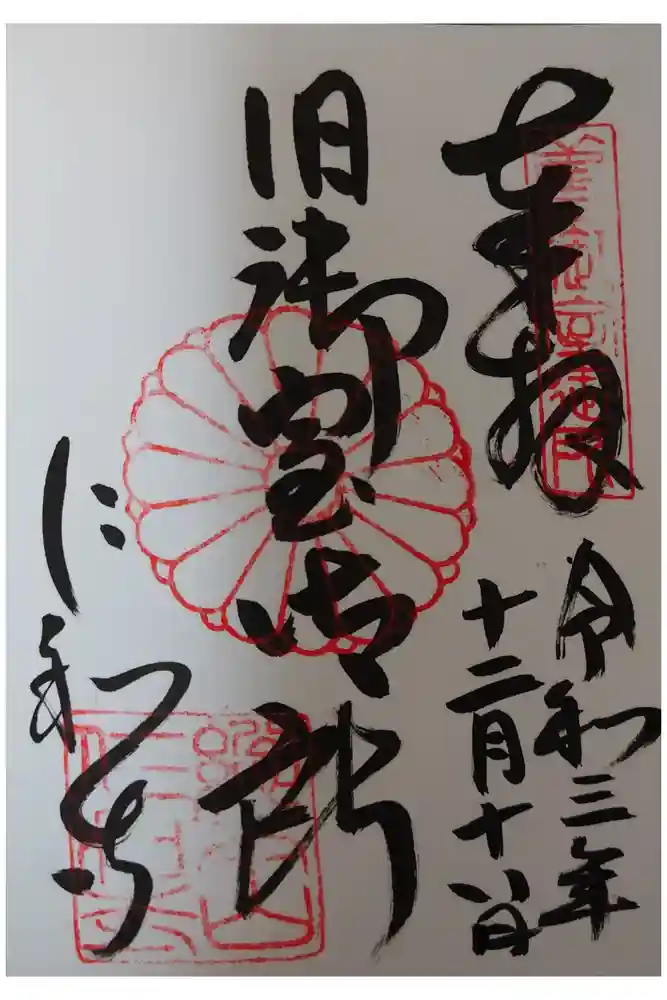 奉拝
令和三年
十二月十八日
旧御室御所
仁和寺